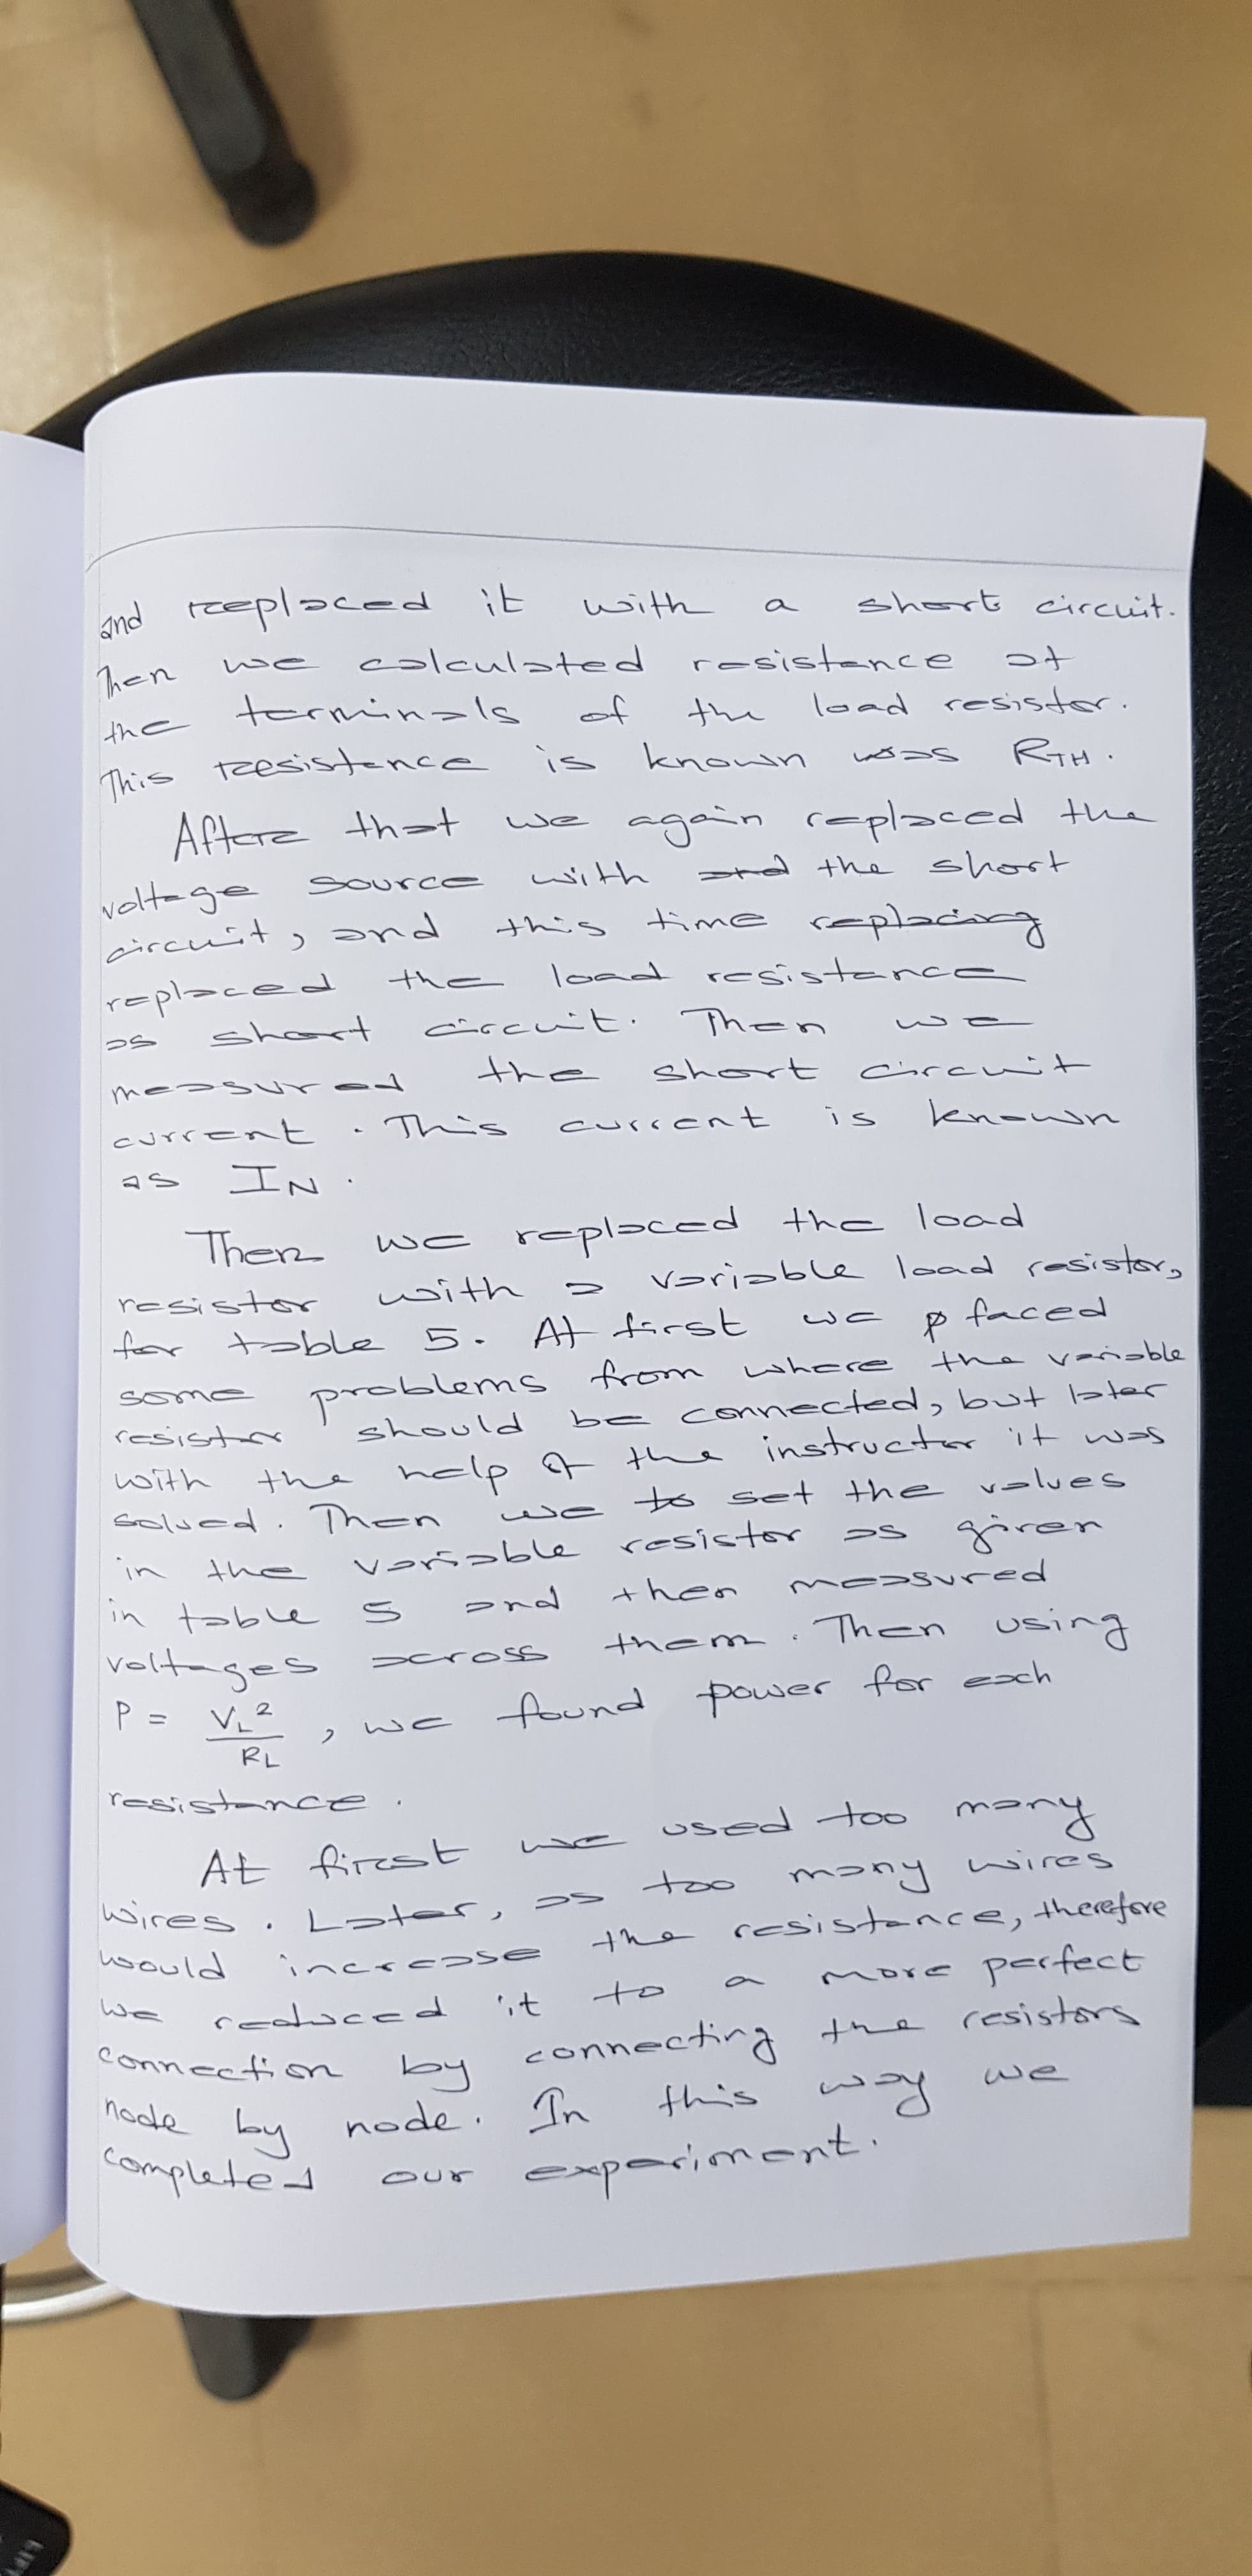 and replaced it with a short circuit.
Then we calculated resistance at
the terminals of the load resistor.
This resistance is known was RTH.
After that we again replaced the
voltage source with and the short
circuit, and this time replacing
replaced the load resistance
as short circuit. Then we
measured the short circuit
current. This current is known
as IN.
Then we replaced the load
resistor with a variable load resistor,
for table 5. At first we p faced
some problems from where the variable
resistor should be connected, but later
with the help of the instructor it was
solved. Then we to set the values
in the variable resistor as given
in table 5 and then measured
voltages across them. Then using
P = VL²/RL, we found power for each
resistance.
At first we used too many
wires. Later, as too many wires
would increase the resistance, therefore
we reduced it to a more perfect
connection by connecting the resistors
node by node. In this way we
completed our experiment.